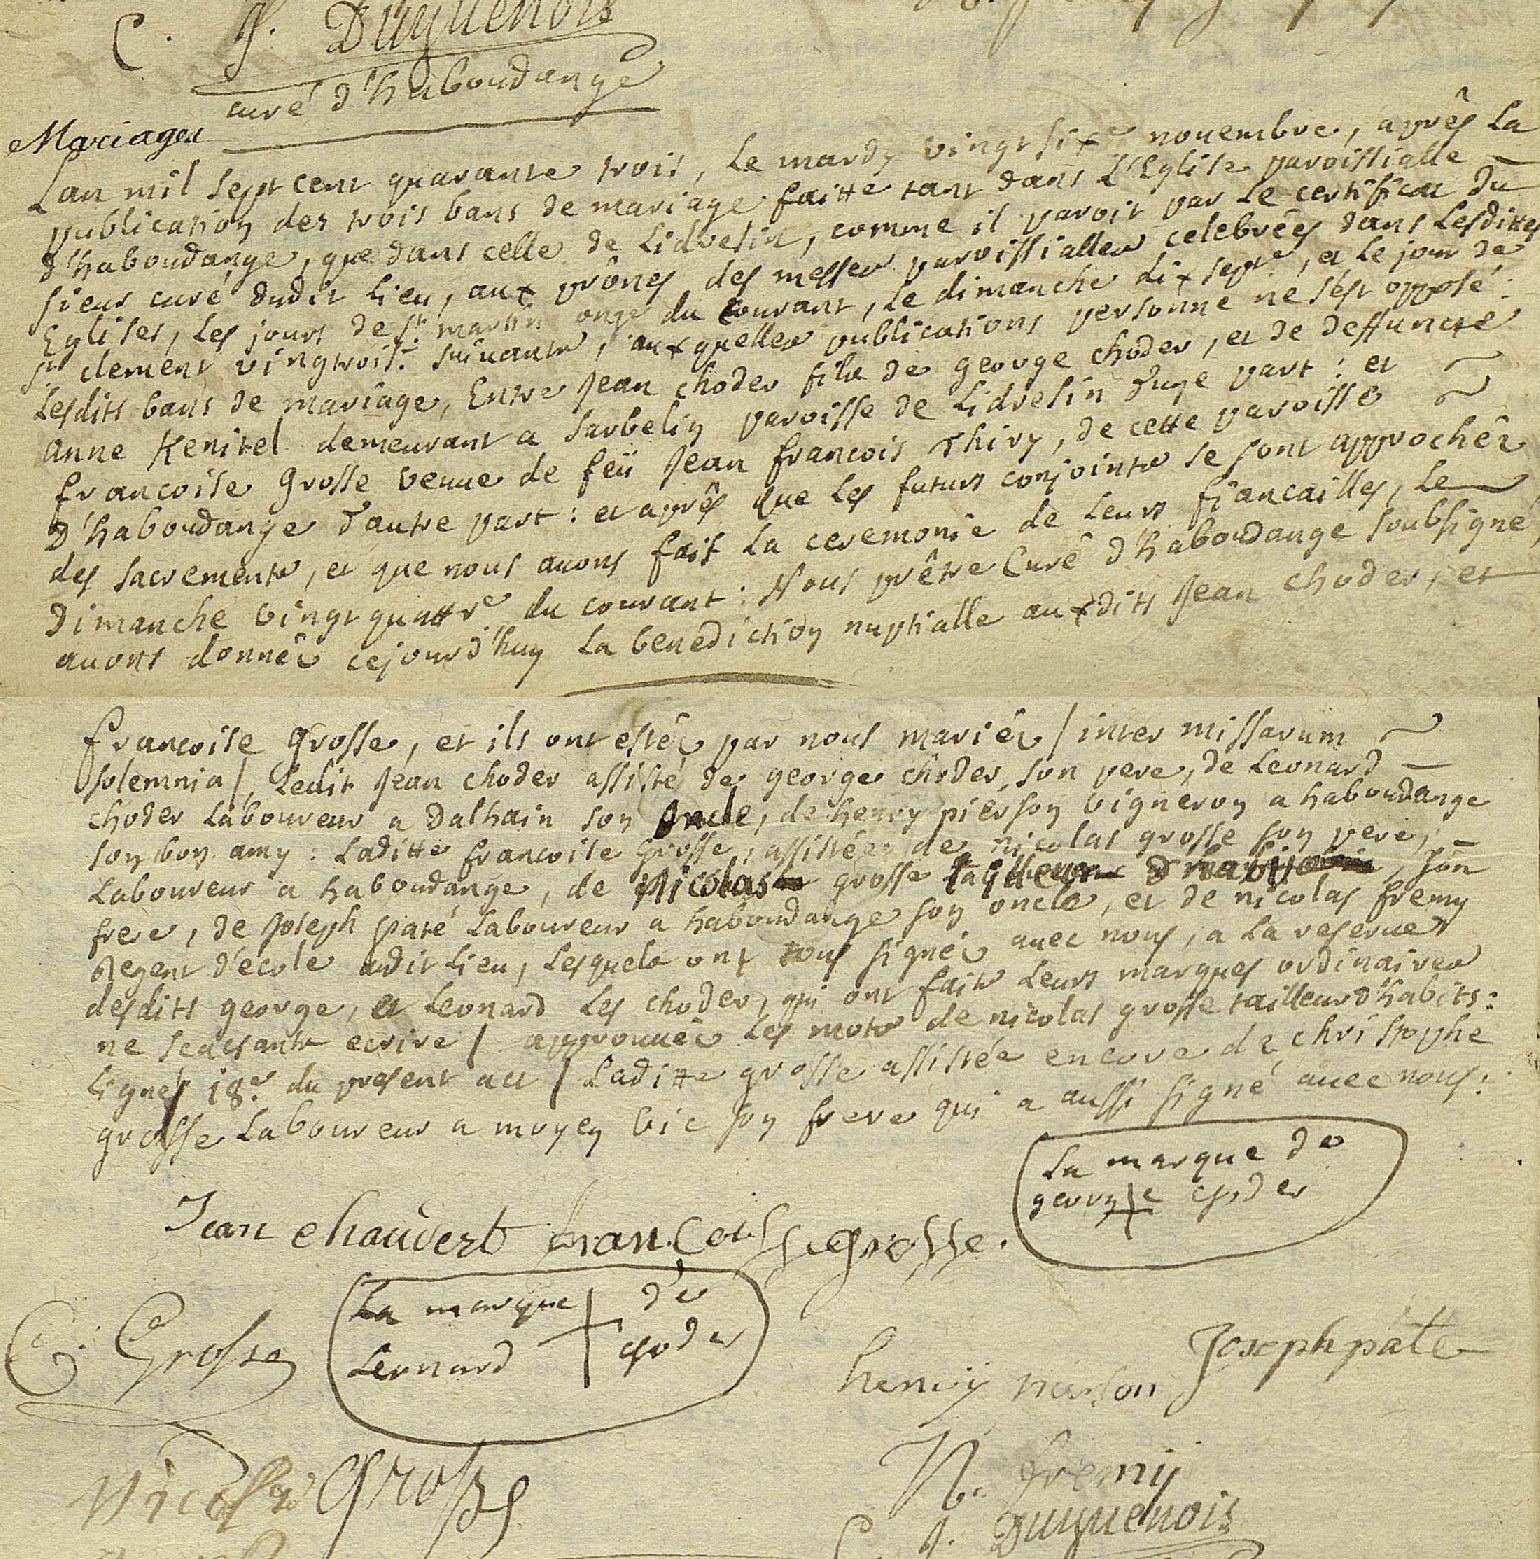 C. J. Duquenois
curé d'haboudange
Mariages
Lan mil sept cent quarante trois, le mardy vingt sixe nouembre, aprês La
publication des trois bans de mariage faitte tant dans L'Eglise paroissialle
d'haboudange, que dans celle de Lidresin, comme il paroit par Le certificat du
sieur curé dudit Lieu, aux prônes des messes paroissialles celebrées dans Lesdittes
Eglises, Les jours de St martin onze du Courant, Le dimanche dix septe, et Le jour de
St clement vingtroise suiuants, auxquelles publications personne ne s'est opposé:
Lesdits bans de mariage, Entre Jean choder fils de george choder, et de deffuncte
anne Kenitel demeurant a Sarbelin paroisse de Lidresin d'une part: et
francoise Grosse veuue de feü Jean francois Thiry, de cette paroisse
d'haboudange d'autre part: et aprês que Les futurs conjoints se sont approchês
des sacrements, et que nous auons fait La ceremonie de Leurs fiancailles, Le
dimanche vingt quattre du courant: Nous prêtre Curé d'haboudange soubsigné,
auons donnée cejourd'huy La benediction nuptialle auxdits Jean choder, et
francoise Grosse, et ils ont estéz par nous mariéz / inter missarum
solemnia /, Ledit Jean choder assisté de george choder, son pere, de Leonard
choder Laboureur a Dalhain son Oncle, de henry pierson vigneron a haboudange
son bon amy: Laditte francoise Grosse, assistée de nicolas grosse son pere,
Laboureur a haboudange, de Nicolas grosse tailleur d'habits, son
frere, de Joseph paté Laboureur a haboudange son oncle, et de nicolas fremy
Regent d'école audit Lieu, Lesquels ont tous signéz auec nous, a La reserue
desdits george, et Leonard Les choder, qui ont fait Leurs marques ordinaires
ne sçachants ecrire / approuuéz Les mots de nicolas grosse tailleur d'habits:
Lignes 18e du present act / Laditte grosse assistée encore de christophe
grosse Laboureur a moyen vic son frere qui a aussi signé auec nous:
La marque de
george + choder
Jean chaudert francoisse grosse.
La marque + de
Leonard choder
C. Grosse
Joseph pâte
henrÿ
Nicolas Grosse
N. fremij
C. J. Duquenois